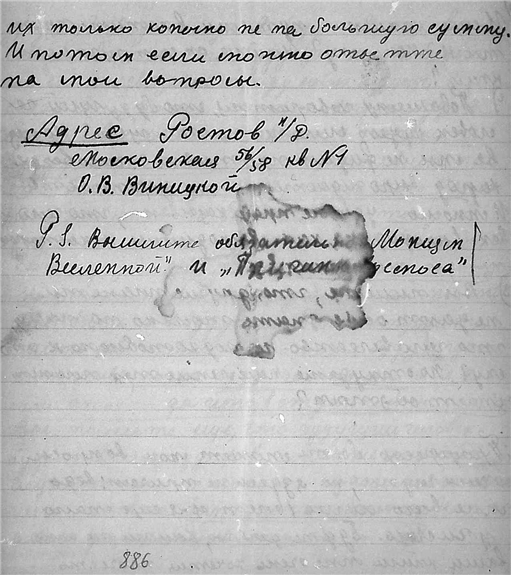 их только конечно не на большую сумму.
И потом если можно ответьте
на мои вопросы.
Адрес Ростов н/Д.
Московская 56/58 кв №1
О.В. Виницкой
P.S. Вышлите обязательно Монцин
Вселенной" и „
886